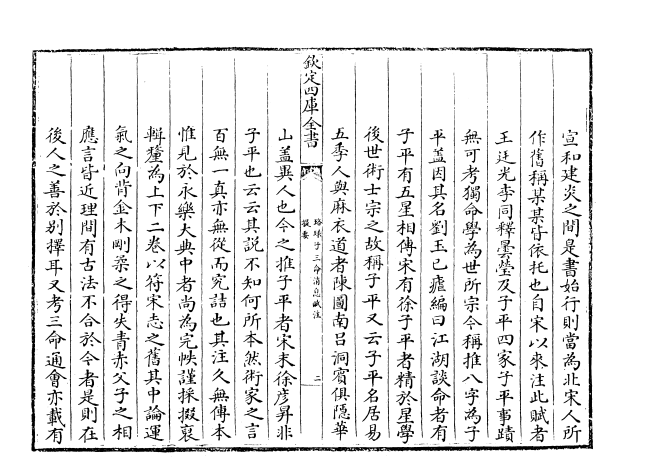 宣和建炎之間是書始行則當為北宋人所
作舊稱某某皆依托也自宋以來注此賦者
王廷光李同釋曇瑩及子平四家子平事蹟
無可考獨命學為世所宗今稱推八字為子
平蓋因其名劉玉已瘧編曰江湖談命者有
子平有五星相傳宋有徐子平者精於星學
後世術士宗之故稱子平又云子平名居易
五季人與麻衣道者陳圖南呂洞賓俱隱華
欽定四庫全書
珞琭子三命消息賦注
提要
二
山蓋異人也今之推子平者宋末徐彥昇非
子平也云云其說不知何所本然術家之言
百無一真亦無從而究詰也其注久無傳本
惟見於永樂大典中者尚為完帙謹採掇裒
輯釐為上下二卷以符宋志之舊其中論運
氣之向背金木剛柔之得失青赤父子之相
應言皆近理間有古法不合於今者是則在
後人之善於別擇耳又考三命通會亦載有